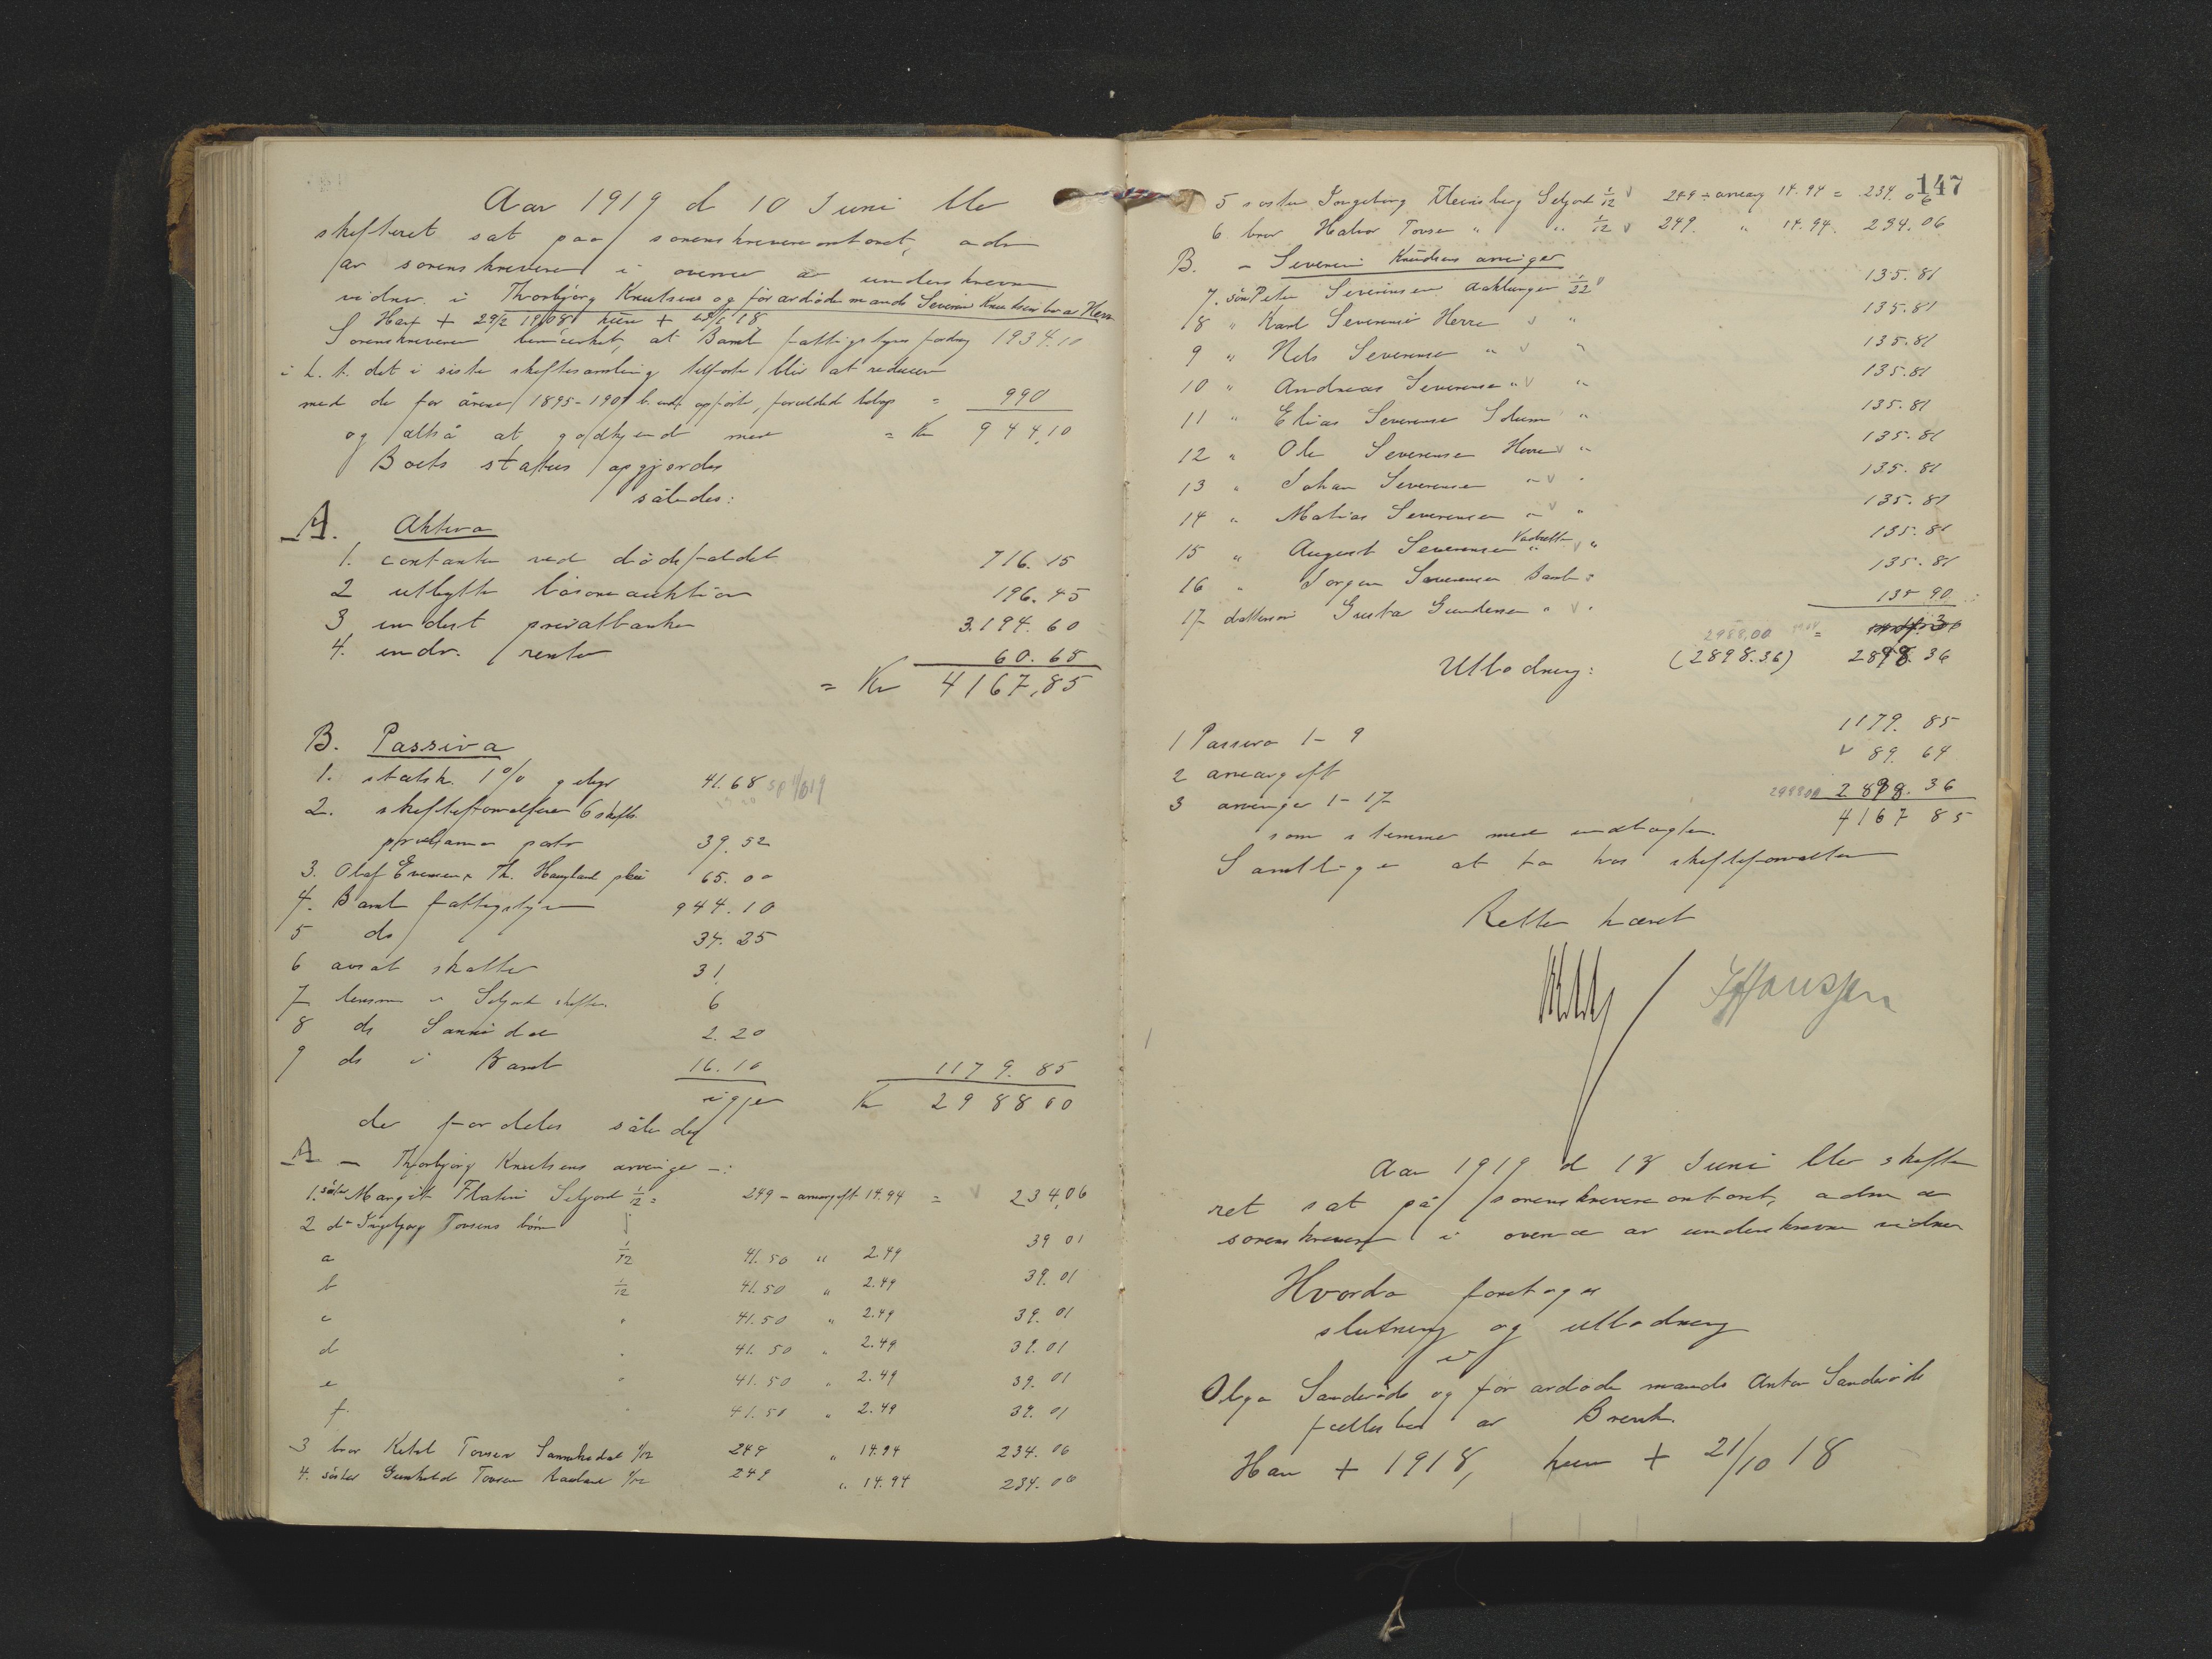 Aar 1919 d 10 Juni blev
skifteret sat paa sorenskriverkontoret, adm
av sorenskriveren i overvær av underskrevne
vidner i Thorbjørg Knutsens og før avdøde mands Severin Knutsens bo av Herre
Han + 29/2 1908 hun + 18
Sorenskriveren bemærket, at Bamble fattigstyres fordring 1934.10
i h. t. det i siste skiftesamling tilførte blir at reducere
med de for årene 1895-1901 opførte, forældede beløp = 990
og altså at godkjende med = Kr 944,10
Boets status opgjordes
således:
A. Aktiva
1. contanter ved dødsfaldet 716.15
2 utbytte løsøreauktion 196.45
3 indest privatbanken 3.194.60
4. indv. renter 60.65
= Kr 4167,85
B. Passiva
1. statsk. 1% gebyr 41.68
2. skifteforvalteren 6 skifts.
proklama porto 39.52
3. Olaf Evensen Th. Haugland pleie 65.00
4. Bamble fattigstyre 944.10
5 do 34.25
6 avsat skatter 31
7 lensm i Seljord skifte 6
8 do Sannidal 2.20
9 do i Bamble 16.10 1179.85
igjen Kr 2988 00
der fordeles således
A - Thorbjørg Knutsens arvinger -:
1. søster Margit Flatin Seljord 1/12 = 249 - arveavgift 14.94 = 234,06
2 do Ingebjørg Tovsens børn
a 1/12 41.50 " 2.49 39 01
b 1/12 41.50 " 2.49 39.01
c " 41.50 " 2.49 39.01
d " 41.50 " 2.49 39.01
e " 41.50 " 2.49 39.01
f " 41.50 " 2.49 39.01
3 bror Ketil Tovsen Sannikedal 1/12 249 " 14.94 234.06
4. søster Gunhild Tovsen 1/12 249 " 14.94 234.06
147
5 søster Ingeborg Seljord 1/12 249 ÷ arveavg 14.94 = 234.06
6 bror Halvor Tovsen " " 1/12 249. " 14.94. 234.06
B. - Severin Knudsens arvinger
7. søn Peter Severinsen 1/22 135.81
8 " Karl Severinsen Herre " 135.81
9 " Nels Severinsen " " 135.81
10 " Andreas Severinsen " " 135.81
11 " Elias Severinsen Solum " 135.81
12 " Ole Severinsen Herre " 135.81
13 " Johan Severinsen " " 135.81
14 " Matias Severinsen " " 135.81
15 " August Severinsen " 135.81
16 " Jørgen Severinsen Bamble " 135.81
17 dattersøn Gustav Gundersen " " 135 90
2988,00 =
Utlodning: (2898.36) 2898.36
1 Passiva 1-9 1179.85
2 arveavgift 89.64
3 arvinger 1-17 2988.00 2898.36
som stemmer med indtægten. 4167 85
Samtlige at ta hos skifteforvalteren
Retten hævet
Aar 1919 d 18 Juni blev skifte
ret sat på sorenskriverkontoret, adm av
sorenskriveren i overvær av underskrevne vidner
Hvorda foretoges
slutning og utlodning
i
Olga Sanderøds og før avdøde mands Anton Sanderøds
fællesbo av Brevik.
Han + 1918, hun + 21/10 18